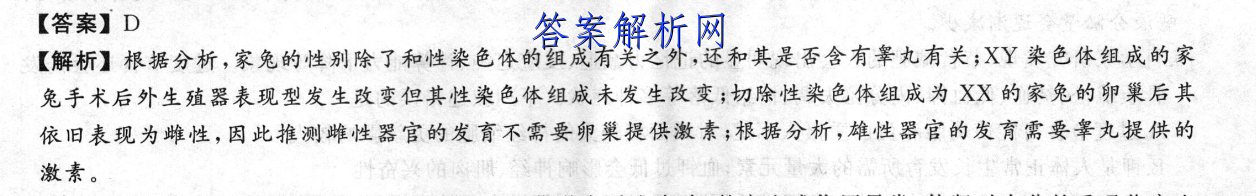 【答案】D
答案解析网
【解析】根据分析,家兔的性别除了和性染色体的组成有关之外,还和其是否含有睾丸有关;XY 染色体组成的家
兔手术后外生殖器表现型发生改变但其性染色体组成未发生改变;切除性染色体组成为 XX 的家兔的卵巢后其
依旧表现为雌性,因此推测雌性器官的发育不需要卵巢提供激素;根据分析,雄性器官的发育需要睾丸提供的
激素。